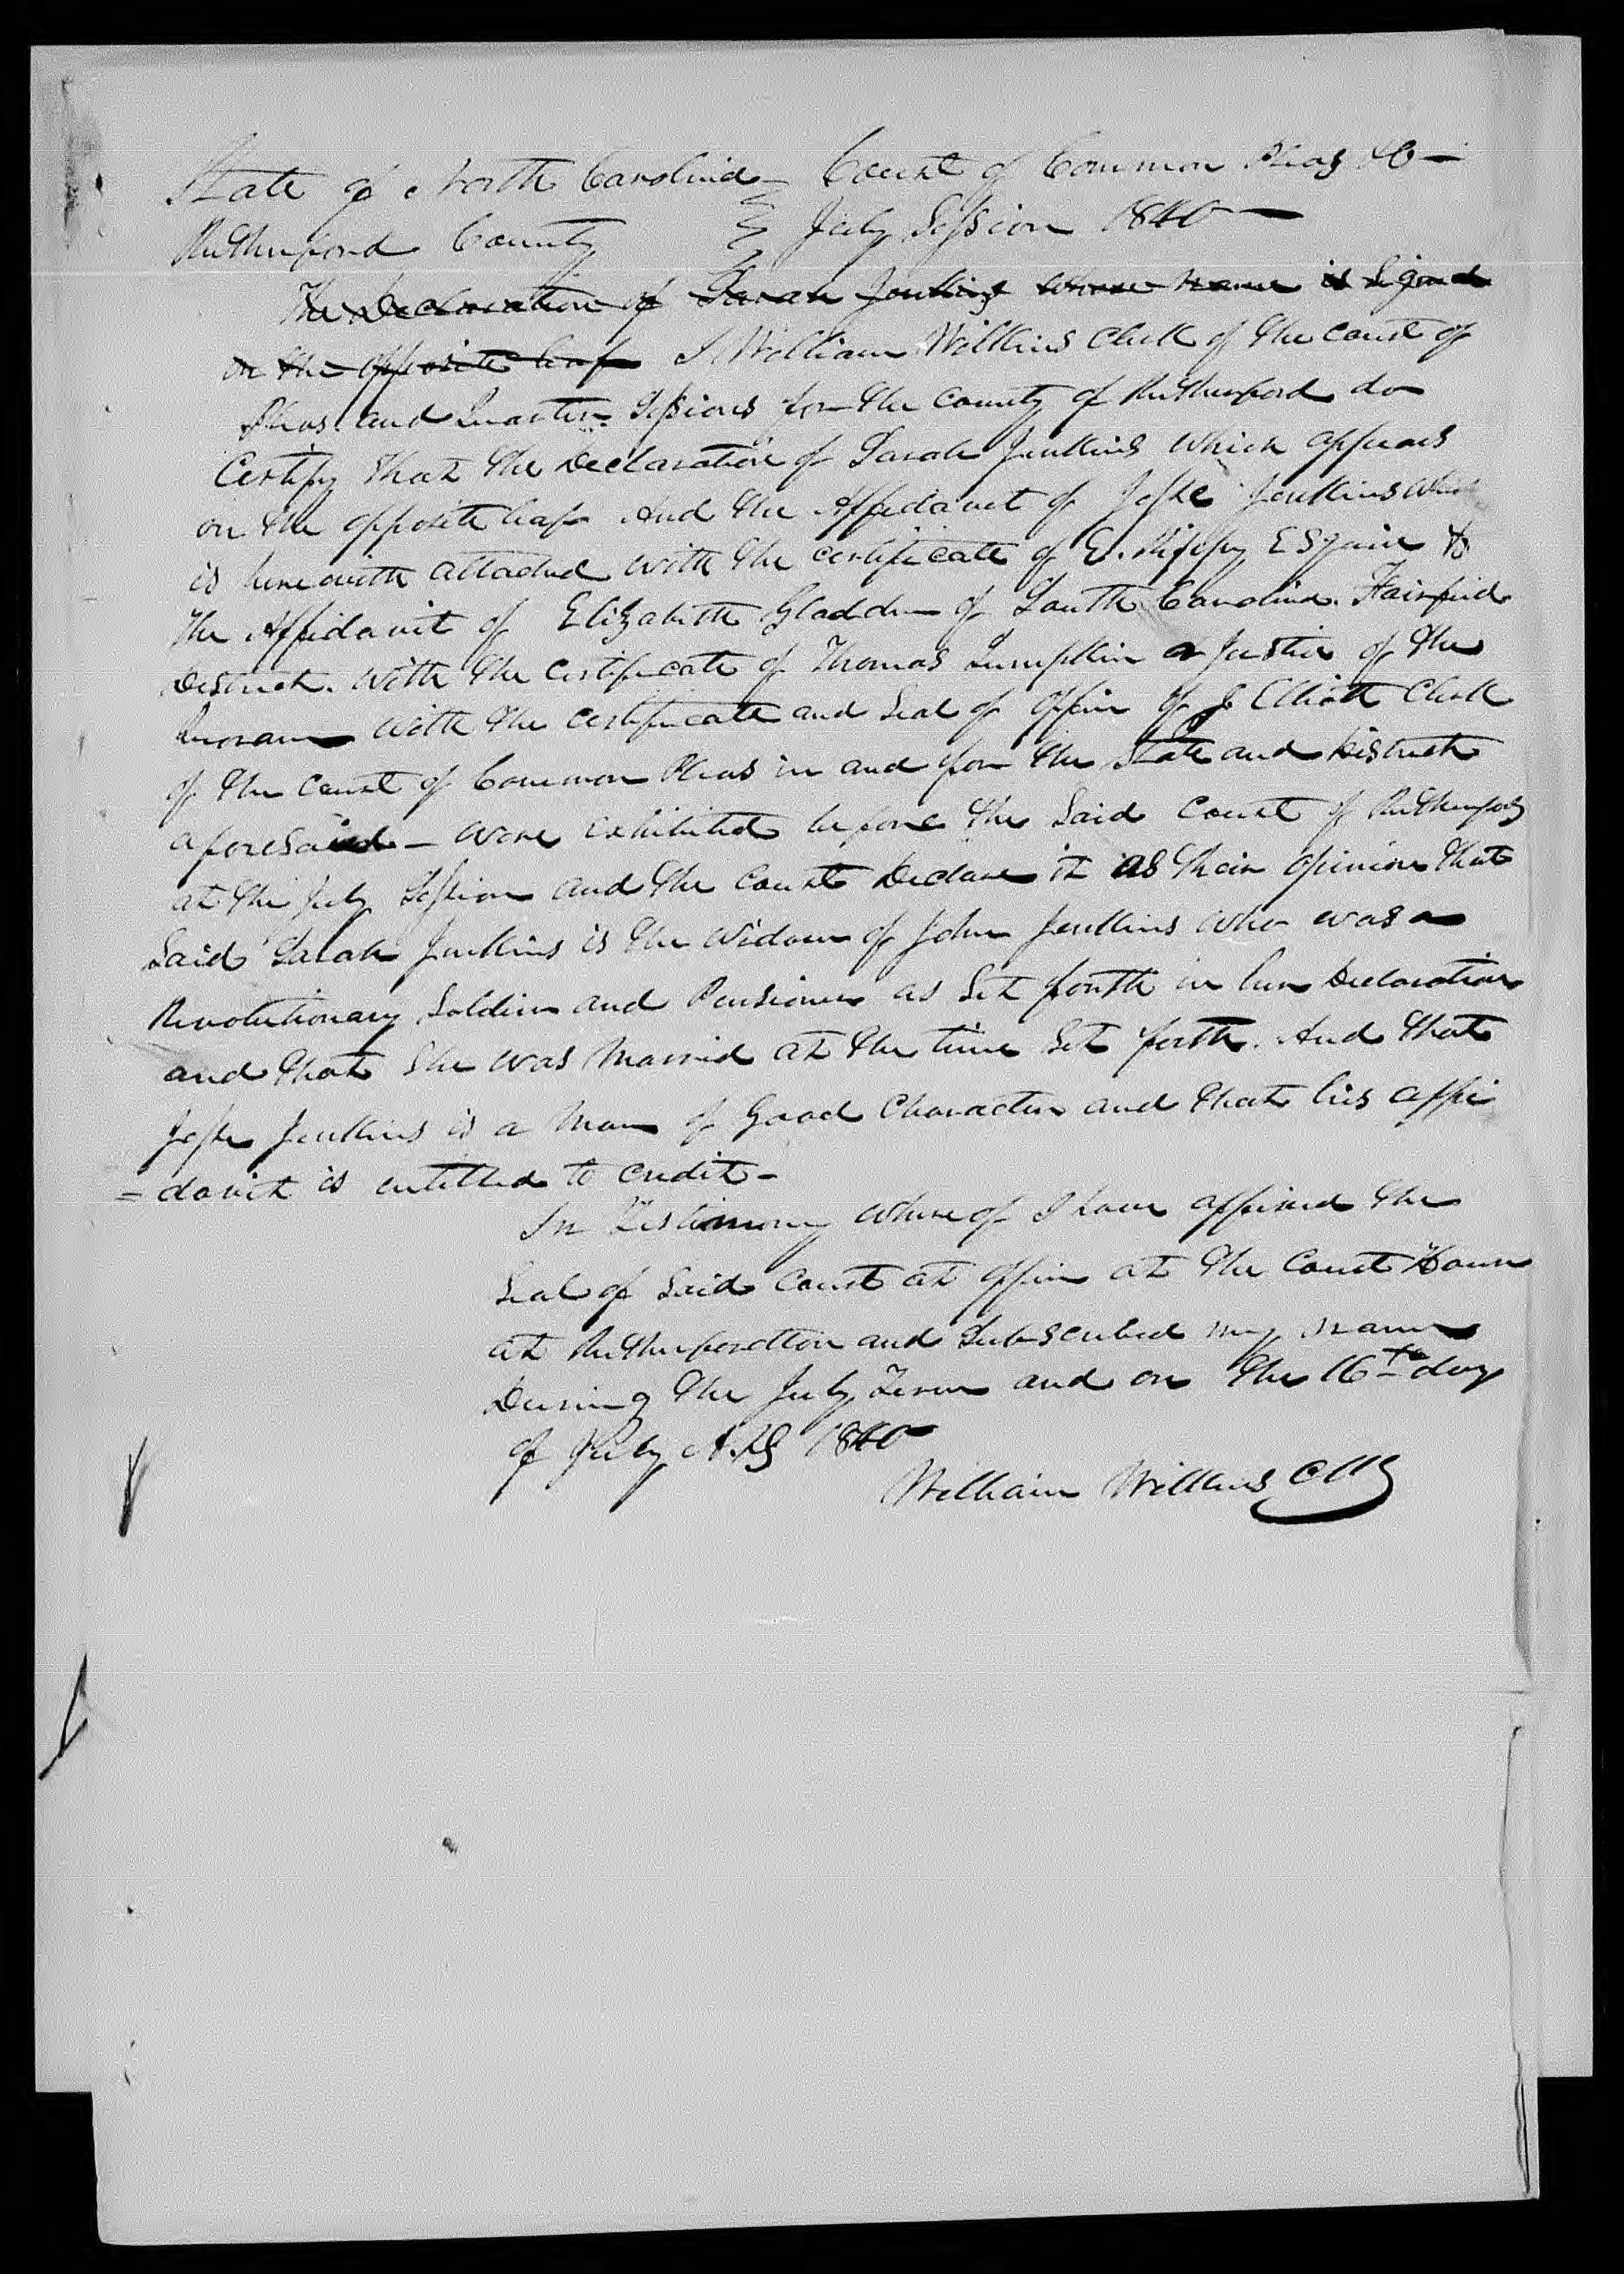 State of North Carolina Court of Common Pleas &C
Rutherford County July Session 1840
The Declaration of Sarah Jenkins whose name is Signed
on the opposite leaf I William Wilkins Clerk of the court of
Pleas and Quarter Sessions for the County of Rutherford do
Certify that the Declaration of Sarah Jenkins which appears
on the opposite leaf And the Affidavit of Jesse Jenkins which
is herewith attached with the certificate of E. Esquire &
the Affidavit of Elizabeth Gladden of South Carolina. Fairfield
District. with the certificate of Thomas Lumpkin a Justice of the
with the certificate and Seal of office of J Elliott Clerk
of the Court of Common Pleas in and for the State and District
aforesaid - were exhibited before the Said Court of Rutherford
at the July Session and the Court Declare it as their opinion that
Said Sarah Jenkins is the Widow of John Jenkins who was a
Revolutionary Soldier and Pensioner as Set forth in her Declaration
and that She was Married at the time Set forth. And that
Jesse Jenkins is a Man of Good Character and that his affi
= davit is entitled to credit -
In Testimony whereof I have affixed the
Seal of Said Court at office at the Court House
at Rutherfordton and Subscribed my name
During the July Term and on the 16th day
of July A.D 1840
William Wilkins CLK